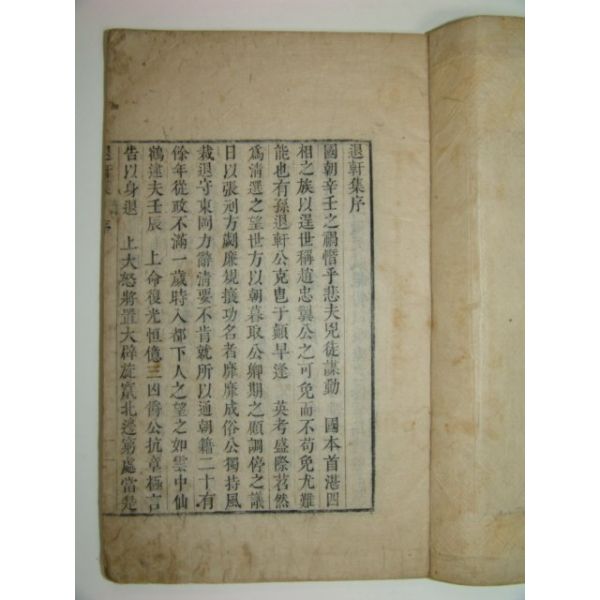 退軒集序
國朝辛壬之禍憯乎悲夫兇徒謀動 國本首湛四
相之族以逞世稱趙忠翼公之可免而不苟免尤難
能也有孫退軒公克皀于顚早逢 英考盛際茗然
爲清選之望世方以朝暮取公卿期之顧調停之議
日以張刓方劌廉規攘功名者靡靡成俗公獨持風
裁退守東岡力辭清要不肯就所以通朝籍二十有
餘年從政不滿一歲時入都下人之望之如雲中仙
鶴逮夫壬辰 上命復光恒億三凶爵公抗章極言
告以身退 上大怒將置大辟旋竄北邊窮處當是
退軒集 序